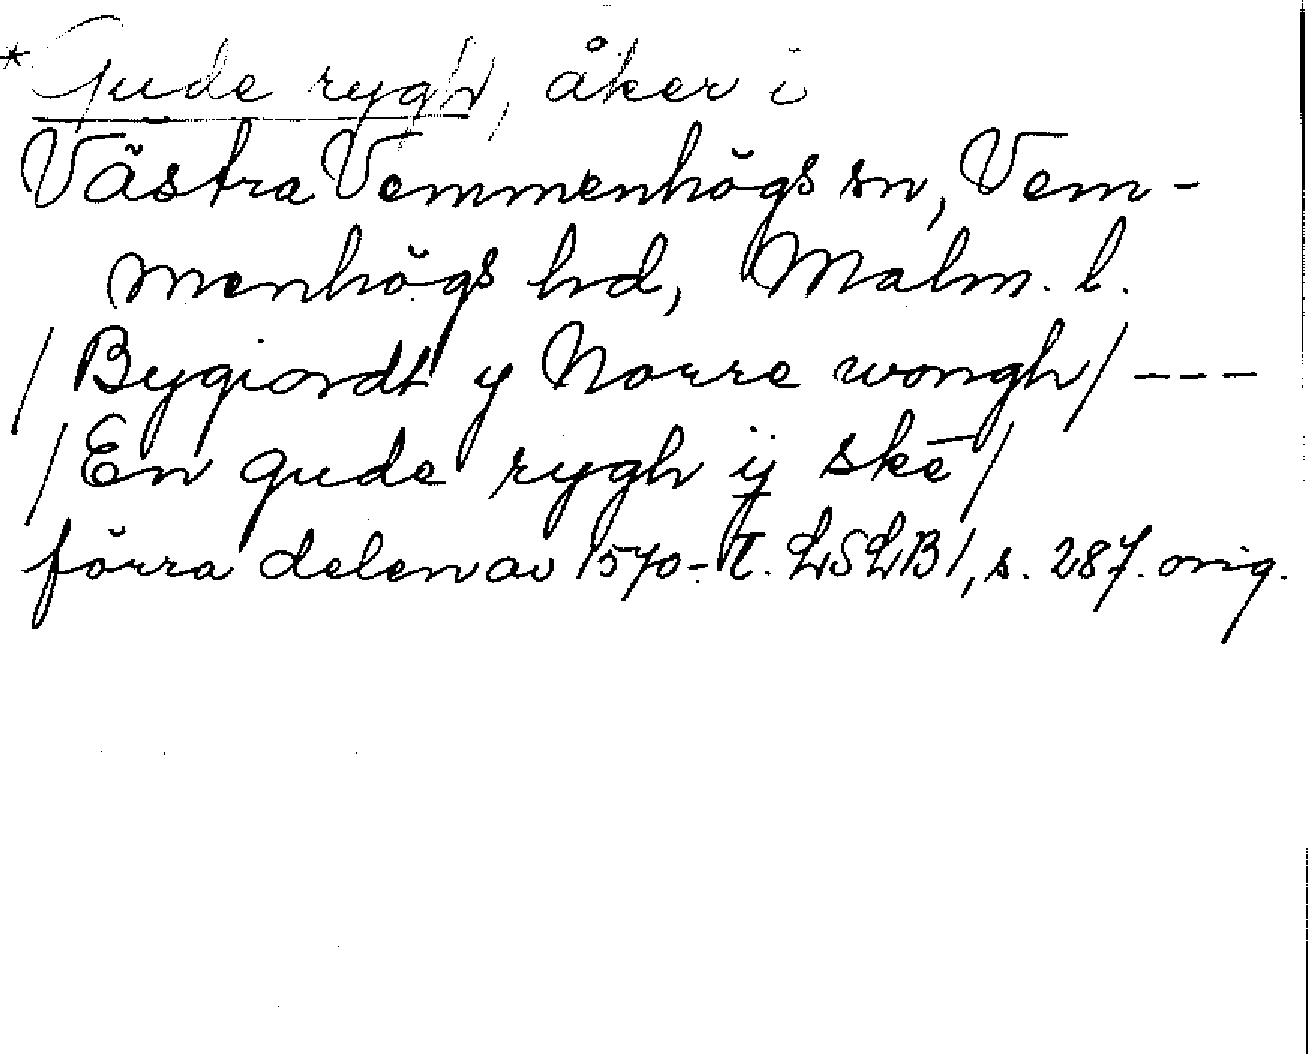 * Gude rygh, åker i
Västra Vemmenhögs sn, Vem-
menhögs hd, Malm. l.
/Bygiordt y Norre wongh/ ---
/En gude rygh ÿ skē/
förra delen av 1570-t. LSLB1, s. 287. orig.